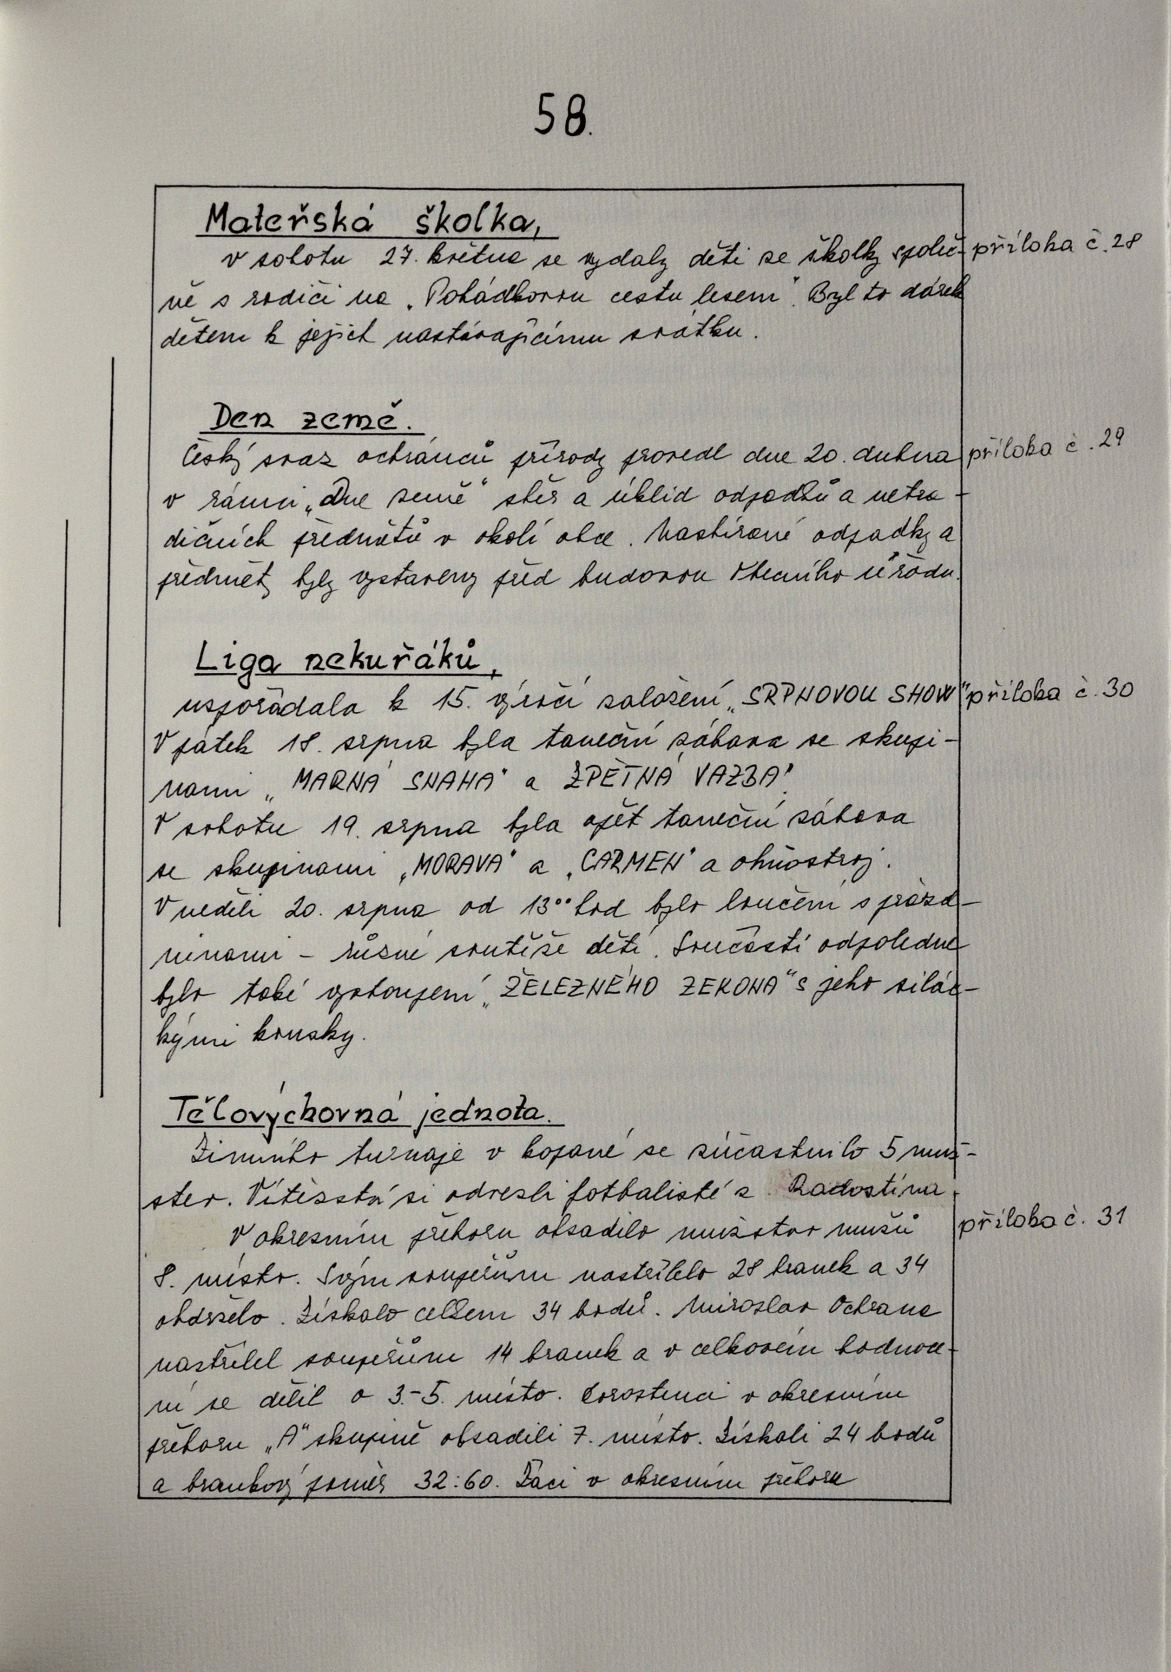 58.
Mateřská školka,
v sobotu 27. května se vydaly děti ze školky společ- příloha č. 28
ně s rodiči na „Pohádkovou cestu lesem". Byl to dárek
dětem k jejich nastávajícímu svátku.
Den země.
Český svaz ochránců přírody provedl dne 20. dubna příloha č. 29
v rámci „Dne země" sběr a úklid odpadků a netra-
dičních předmětů v okolí obce. Nasbírané odpadky a
předměty byly vystaveny před budovou Obecního úřadu.
Liga nekuřáků,
uspořádala k 15. výročí založení „SRPNOVOU SHOW" příloha č. 30
V pátek 18. srpna byla taneční zábava se skupi-
nami „MARNÁ SNAHA" a ZPĚTNÁ VAZBA".
V sobotu 19. srpna byla opět taneční zábava
se skupinami „MORAVA" a „CARMEN" a ohňostroj.
V neděli 20. srpna od 13⁰⁰ hod bylo loučení s prázd-
ninami – různé soutěže dětí. Součástí odpoledne
bylo také vystoupení „ŽELEZNÉHO ZEKONA" s jeho silác-
kými kousky.
Tělovýchovná jednota.
Zimního turnaje v kopané se zúčastnilo 5 muž-
stev. Vítězství si odnesli fotbalisté z Radostína.
V okresním přeboru obsadilo mužstvo mužů příloha č. 31
8. místo. Svým soupeřům nastřílelo 28 branek a 34
obdrželo. Získalo celkem 34 bodů. Miroslav Ochrana
nastřílel soupeřům 14 branek a v celkovém hodnoce-
ní se dělil o 3.-5. místo. Dorostenci v okresním
přeboru „A" skupině obsadili 7. místo. Získali 24 bodů
a brankový poměr 32:60. Žáci v okresním přeboru